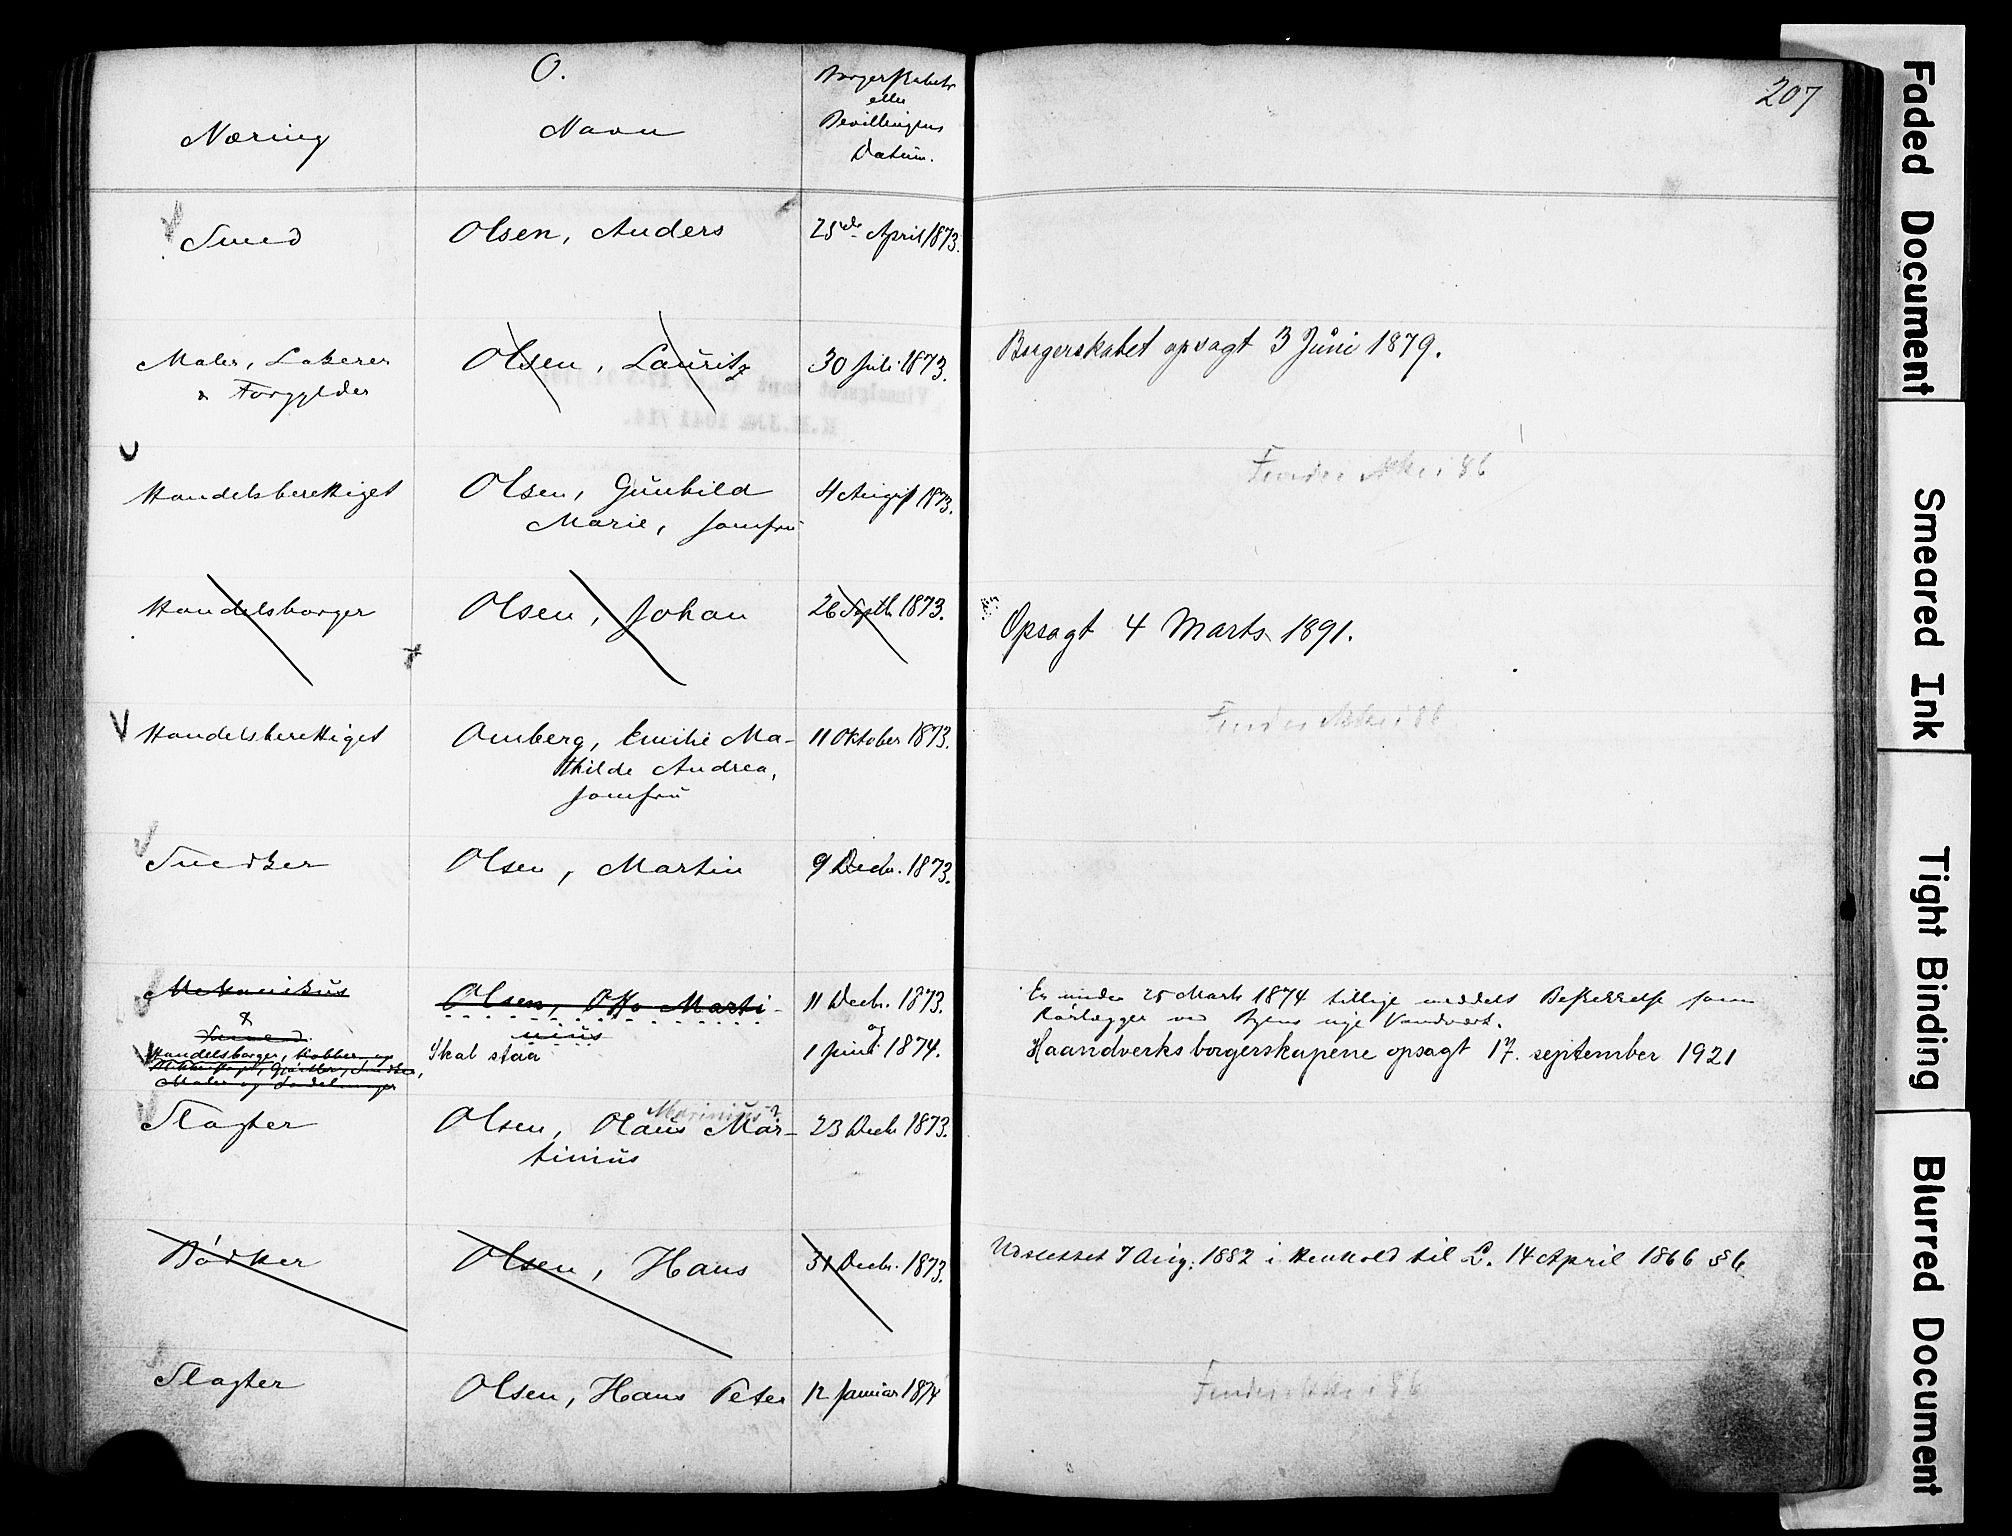 O.
207
Næring
Navn
Borgerskabets
eller
Bevillingens
Datum.
Smed
Olsen, Anders
25de April 1873.
Maler, Lakerer
& Forgylder
Olsen, Lauritz
30 Juli 1873.
Borgerskabet opsagt 3 Juni 1879.
Handelsberettiget
Olsen, Gunhild
Marie, Jomfru
4 August 1873.
Findes ikke i 86
Handelsborger
Olsen, Johan
26 Septb. 1873.
Opsagt 4 Marts 1891.
Handelsberettiget
Omberg, Emilie Ma-
thilde Andrea,
Jomfru
11 Oktober 1873.
Findes ikke i 86
Snedker
Olsen, Martin
9 Decbr. 1873.
Mekanikus
&
Smed
Handelsborger, Kobber og
Blikkenslager, Gjørtler, Snedker,
Maler og Sadelmager
Olsen, Otto Marti-
nius
Skal staa
11 Decbr. 1873.
og
1 Juni 1874.
Er under 25 Marts 1874 tillige meddelt Beskikkelse som
Rørlægger ved Byens nye Vandverk.
Haandverksborgerskapene opsagt 17. september 1921
Slagter
Marinius?
Olsen, Olaus Mar-
tinius
23 Decbr. 1873.
Bødker
Olsen, Hans
31 Decbr. 1873.
Udslettet 7 Aug. 1882 i Henhold til L. 14 April 1866 § 6
Slagter
Olsen, Hans Peter
12 Januar 1874
Findes ikke i 86
Faded Document
Smeared Ink
Tight Binding
Blurred Document